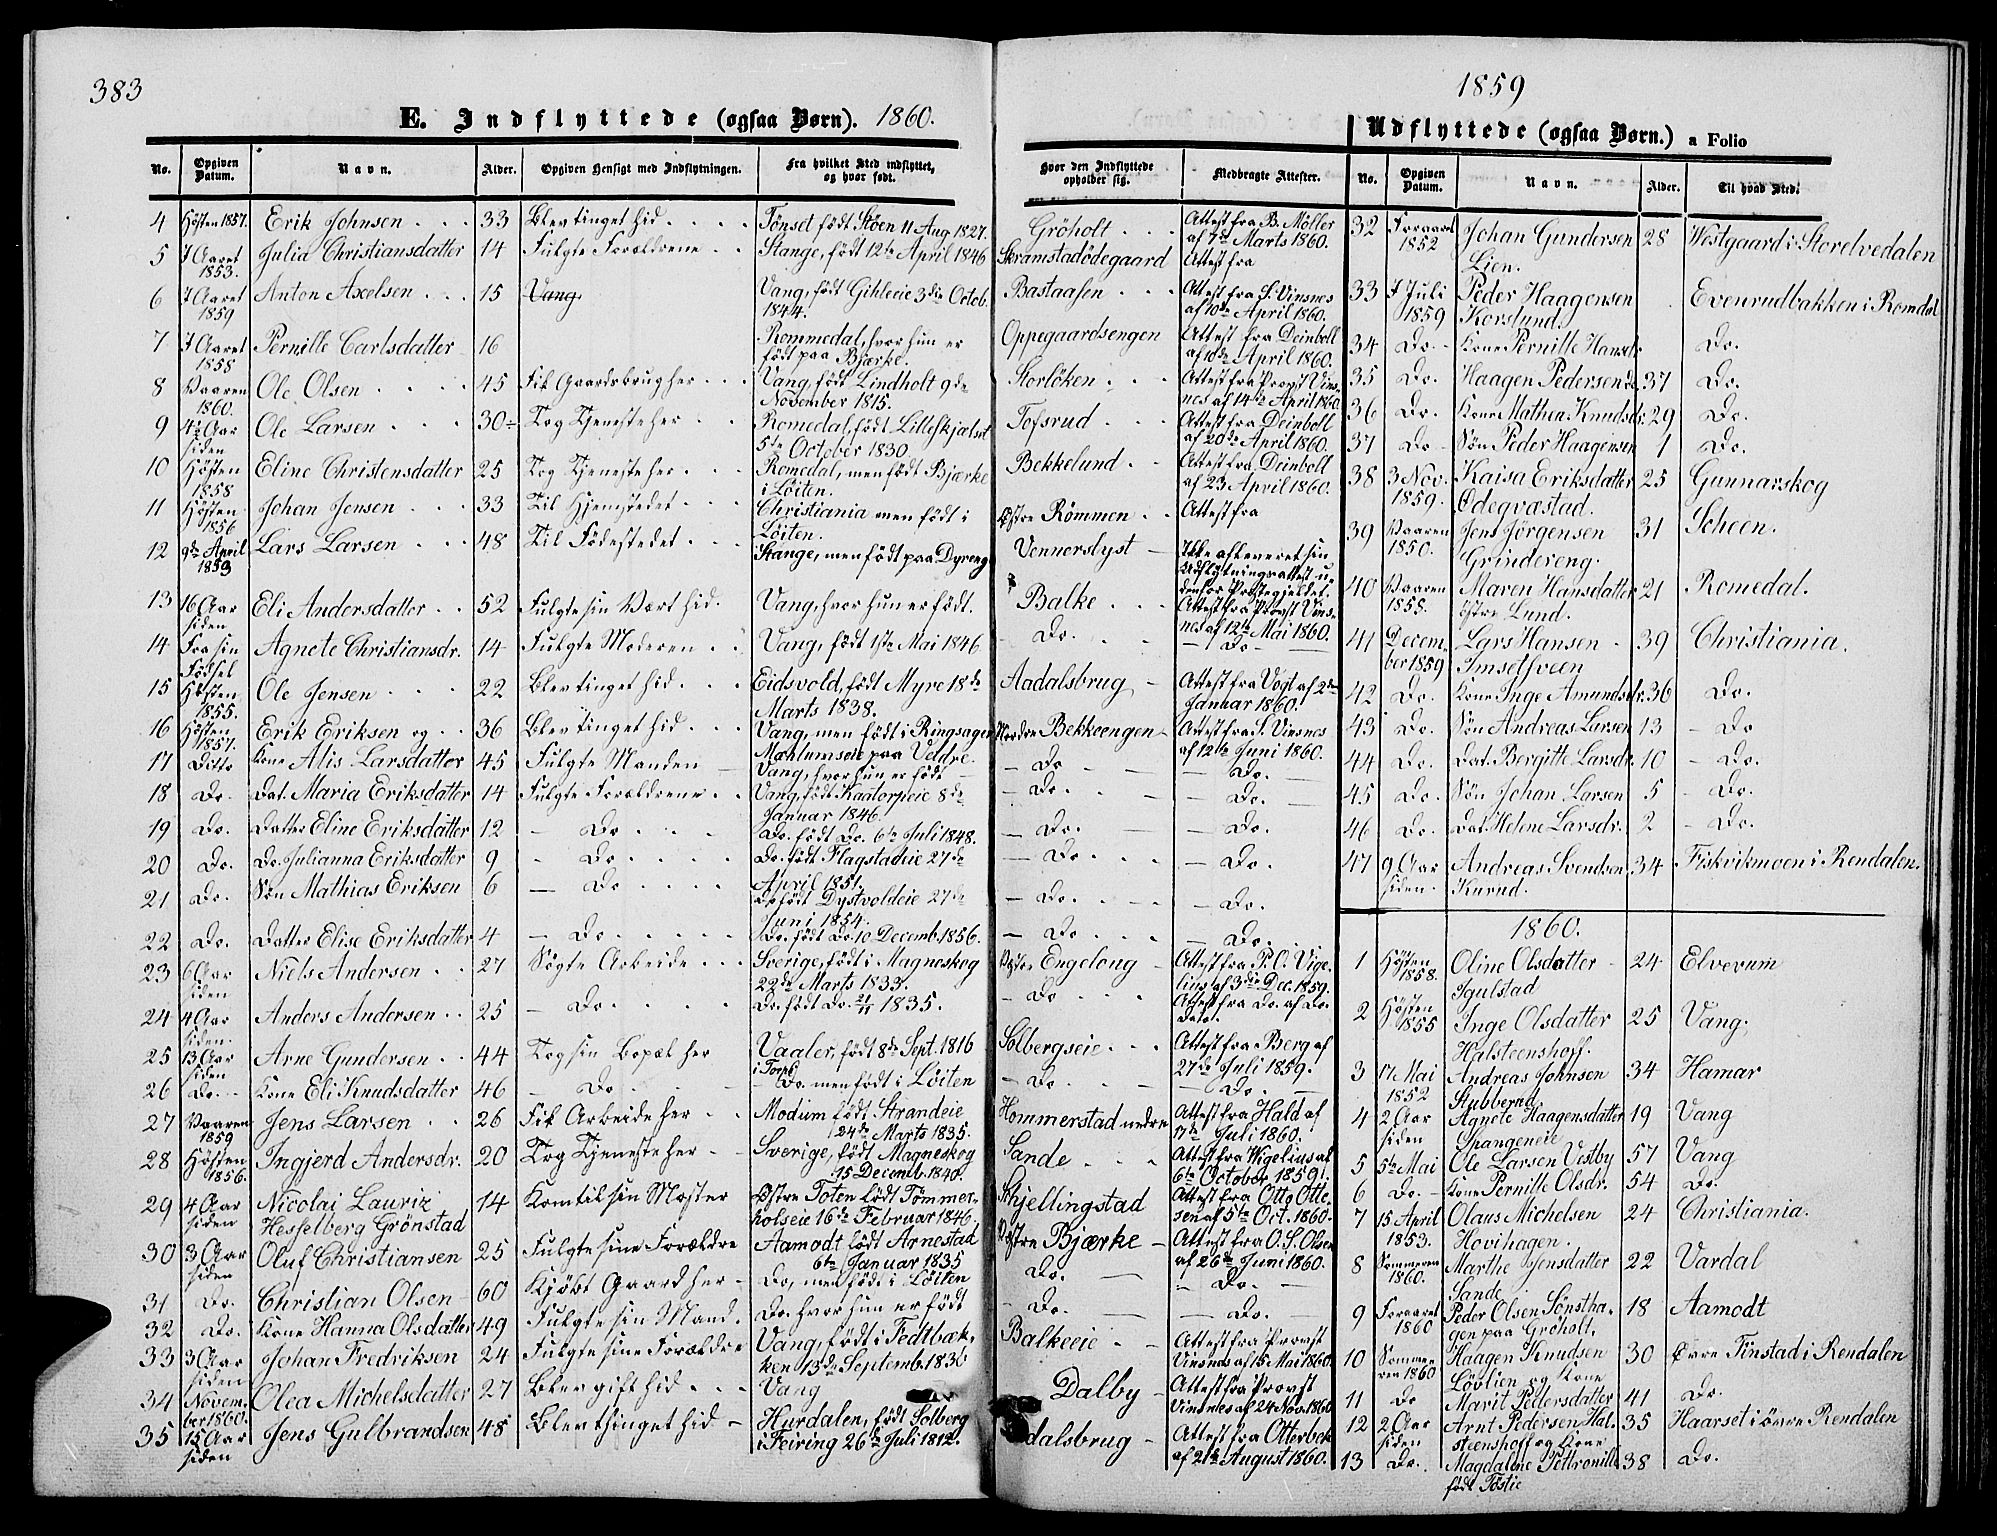 383
E. Indflyttede (ogsaa Børn). 1860.
No. | Opgiven Datum. | Navn. | Alder. | Opgiven Hensigt med Indflytningen. | Fra hvilket Sted indflyttet, og hvor født. | Hvor den Indflyttede opholder sig. | Medbragte Attester.
4 | Høsten 1857. | Erik Johnsen | 33 | Blev tinget hid | Tønset født Støen 11 Aug 1827. | Gröholt | Attest fra B. Möller af 7de Marts 1860.
5 | I Aaret 1853. | Julia Christiansdatter | 14 | Fulgte Forældrene | Stange, født 12te April 1846 | Skramstadödegaard | Attest fra
6 | I Aaret 1859 | Anton Axelsen | 15 | Vang | Vang, født Gihleie 3die Octob. 1844. | Bastaasen | Attest fra S. Vinsnes af 10de April 1860.
7 | I Aaret 1858 | Pernille Carlsdatter | 16 | | Rommedal, hvor hun er født paa Bjærke. | Oppegaardsengen | Attest fra Deinboll af 18de April 1860.
8 | Vaaren 1860. | Ole Olsen | 45 | Fik Gaardsbrug her | Vang, født Lindholt 9de November 1815. | Storlöken | Attest fra Propst Vinsnes af 14de April 1860.
9 | 4½ Aar siden | Ole Larsen | 30 | Tog Tjeneste her | Romedal, født Lilleskjælset 5te October 1830 | Tofsrud | Attest fra Deinboll af 20de April 1860.
10 | Høsten 1858 | Eline Christensdatter | 25 | Tog Tjeneste her | Romedal, men født Bjærke i Löiten. | Bekkelund | Attest fra Deinboll af 23 April 1860.
11 | Høsten 1856 | Johan Jensen | 33 | Til Hjemstedet | Christiania men født i Löiten. | Østre Römmen | Attest fra
12 | 9de April 1853 | Lars Larsen | 48 | Til Fødestedet | Stange, men født paa Dyreng | Vennerslyst | Ikke afleveret sin Udflytningsattest udenfor Præstegjeldet.
13 | 16 Aar siden | Eli Andersdatter | 52 | Fulgte sin Vært hid. | Vang, hvor hun er født. | Balke | Attest fra Provst Vinsnes af 12te Mai 1860.
14 | Fra sin Fødsel | Agnete Christiansdr. | 14 | Fulgte Moderen | Vang, født 1ste Mai 1846 | Do. | Do
15 | Høsten 1855. | Ole Jensen | 22 | Blev tinget hid | Eidsvold, født Myre 18de Marts 1838. | Aadalsbrug | Attest fra Vogt af 2den Januar 1860.
16 | Høsten 1857. | Erik Eriksen og | 36 | Blev tinget hid | Vang, men født i Ringsager Mæhlumseie paa Veldre. | Nordre Bekkeengen | Attest fra S. Vinsnes af 12te Juni 1860.
17 | Ditto | Kone Alis Larsdatter | 45 | Fulgte Manden | Vang, hvor hun er født | Do | Do.
18 | Do. | Dat. Maria Eriksdatter | 14 | Fulgte Forældrene | Vang, født Kaatorpeie 8de Januar 1846. | Do. | Do.
19 | Do. | Datter Eline Eriksdatter | 12 | Do. | Do. født Do. 6te Juli 1848. | Do. | Do.
20 | Do. | Do. Julianna Eriksdatter | 9 | Do. | Do. født Flagstadeie 27de April 1851. | Do | Do.
21 | Do. | Søn Mathias Eriksen | 6 | Do | Do født Dystvoldeie 27de Juni 1854. | Do. | Do.
22 | Do. | Datter Elise Eriksdatter | 4 | Do | Do. født Do. 10 Decemb. 1856. | Do | Do.
23 | 6 Aar siden | Niels Andersen | 27 | Søgte Arbeide | Sverige, født i Magneskog 22de Marts 1833. | Vestre Engelong | Attest fra P. C. Vigelius af 3die Dec. 1859.
24 | 4 Aar siden. | Anders Andersen | 25 | Do. | Do. født Do. 21/11 1835. | Do | Attest fra Do. af Do. Dato.
25 | 13 Aar siden | Arne Gundersen | 44 | Tog sin Bopæl her | Vaaler, født 8de Sept. 1816 i Torpe | Solbergseie | Attest fra Berg af 27de Juli 1859.
26 | Do. | Kone Eli Knudsdatter | 46 | Do. | Do. men født i Löiten | Do. | Do.
27 | Vaaren 1859 | Jens Larsen | 26 | Fik Arbeide her | Modum født Strandeie 24de Marts 1835. | Hommerstad nedre | Attest fra Hald af 17de Juli 1860.
28 | Høsten 1856. | Ingjerd Andersdr. | 20 | Tog Tjeneste her | Sverige, født Magneskog 15 Decemb. 1840. | Sande | Attest fra Wigelius af 6te October 1859.
29 | 4 Aar siden | Nicolai Lauriz Hesselberg Grönstad | 14 | Kom til sin Moster | Østre Toten født Tömmerholseie 16de Februar 1846. | Skjellingstad | Attest fra Otto Ottesen af 5te Oct. 1860.
30 | 3 Aar siden | Oluf Christiansen | 25 | Fulgte sine Forældre | Aamodt født Arnestad 6te Januar 1835 | Vestre Bjærke | Attest fra O. S. Olsen af 26de Juni 1860.
31 | Do. | Christian Olsen | 60 | Kjöbt Gaard her | Do, men født i Löiten | Do. | Do.
32 | Do. | Kone Hanna Olsdatter | 49 | Fulgte sin Mand. | Do. hvor hun er født | Do. | Do.
33 | 3 Aar siden | Johan Fredriksen | 24 | Fulgte sine Forældre | Vang, født i Fedtbækken 13de Septemb. 1836 | Balkeeie | Attest fra Provst Vinsnes af 15 Mai 1860.
34 | November 1860. | Olea Michelsdatter | 27 | Blev gift hid | Vang | Dalby | Attest fra Provst Vinsnes af 24 Nov. 1860
35 | 15 Aar siden | Jens Gulbrandsen | 48 | Blev thinget hid | Hurdalen, født Solberg i Feiring 26de Juli 1812. | dalsbrug | Attest fra Otterbek af 21de August 1860.
1859
Udflyttede (ogsaa Børn.) a Folio
No. | Opgiven Datum. | Navn. | Alder. | Til hvad Sted.
32 | Foraaret 1852 | Johan Gundersen Lien. | 28 | Westgaard i Storelvedalen
33 | I Juli 1859 | Peder Haagensen Korslund. | . | Evenrudbakken i Romdal
34 | Do. | Kone Pernille Hansdr | | Do.
35 | Do. | Haagen Pedersen do | 37 | Do.
36 | Do. | Kone Mathea Knudsdr. | 29 | Do.
37 | Do | Søn Peder Haagensen | 1 | Do.
38 | 3 Nov. 1859. | Kaisa Eriksdatter Ødegræstad. | 25 | Gunnarskog
39 | Vaaren 1850. | Jens Jörgensen Grindereng. | 31 | Scheen.
40 | Vaaren 1858. | Maren Hansdatter östre Lund. | 21 | Romedal.
41 | December 1859 | Lars Hansen Imsetsveen | 39 | Christiania.
42 | Do. | Kone Inge Amundsdr. | 36 | Do.
43 | Do. | Søn Andreas Larsen | 13 | Do
44 | Do. | Dat. Bergitte Larsdr. | 10 | Do.
45 | Do. | Søn Johan Larsen | 5 | Do.
46 | Do. | Dat. Helene Larsdr. | 2 | Do.
47 | 9 Aar siden. | Andreas Svendsen Kurud. | 34 | Fiskvikmoen i Rendalen.
1860.
1 | Høsten 1858. | Oline Olsdatter Igulstad | 24 | Elverum
2 | Høsten 1855 | Inge Olsdatter Halsteenshoff. | 25 | Vang.
3 | 17 Mai 1852 | Andreas Johnsen Stubberud | 34 | Hamar
4 | 2 Aar siden | Agnete Haagensdatter Spangeneie | 19 | Vang
5 | 5te Mai | Ole Larsen Vestby | 57 | Vang
6 | Do. | Kone Pernille Olsdr. | 54 | Do.
7 | 15 April 1853. | Olaus Michelsen Hovihagen. | 24 | Christiania.
8 | Sommeren 1860. | Marthe Jensdatter Sande. | 22 | Vardal
9 | Foraaret 1860 | Peder Olsen Sönsthagen paa Gröholt. | 18 | Aamodt
10 | Sommeren 1860 | Haagen Knudsen Lövlien og Kone | 30 | Øvre Finstad i Rendalen
11 | Do | Marit Pedersdatter | 41 | Do.
12 | 2 Aar siden | Arnt Pedersen Halsteenshoff og Kone | 35 | Haarset i övre Rendalen
13 | Do. | Magdalene Pettronille født Töstie | 38 | Do.